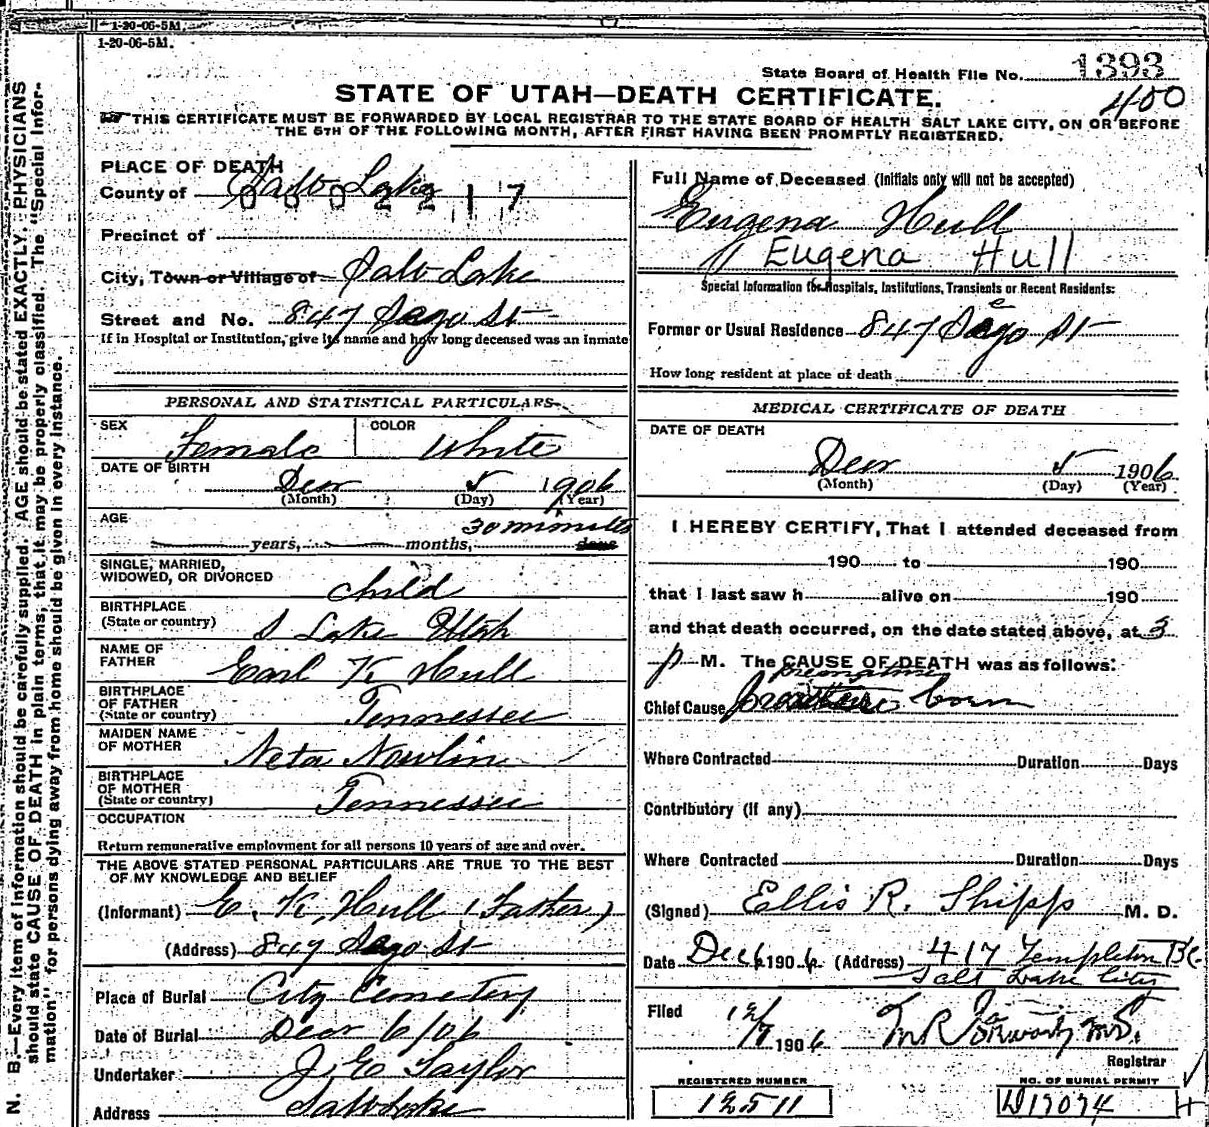 1-20-06-5M.
1-20-06-5M.
State Board of Health File No. 1393
400
STATE OF UTAH—DEATH CERTIFICATE.
THIS CERTIFICATE MUST BE FORWARDED BY LOCAL REGISTRAR TO THE STATE BOARD OF HEALTH SALT LAKE CITY, ON OR BEFORE
THE 5TH OF THE FOLLOWING MONTH, AFTER FIRST HAVING BEEN PROMPTLY REGISTERED.
N. B.—Every item of Information should be carefully supplied. AGE should be stated EXACTLY. PHYSICIANS
should state CAUSE OF DEATH in plain terms, that it may be properly classified. The "Special Infor-
mation" for persons dying away from home should be given in every instance.
PLACE OF DEATH
County of Salt Lake
0 0 0 2 2 1 7
Precinct of
City, Town or Village of Salt Lake
Street and No. 847 Sego St
If in Hospital or Institution, give its name and how long deceased was an inmate
PERSONAL AND STATISTICAL PARTICULARS
SEX Female COLOR White
DATE OF BIRTH
Decr 5 1906
(Month) (Day) (Year)
AGE 30 minutes
years, months, days
SINGLE, MARRIED,
WIDOWED, OR DIVORCED child
BIRTHPLACE
(State or country) S Lake Utah
NAME OF
FATHER Earl K Hull
BIRTHPLACE
OF FATHER
(State or country) Tennessee
MAIDEN NAME
OF MOTHER Neta Nowlin
BIRTHPLACE
OF MOTHER
(State or country) Tennessee
OCCUPATION
Return remunerative employment for all persons 10 years of age and over.
THE ABOVE STATED PERSONAL PARTICULARS ARE TRUE TO THE BEST
OF MY KNOWLEDGE AND BELIEF
(Informant) E. K. Hull (Father)
(Address) 847 Sego St
Place of Burial City Cemetery
Date of Burial Decr 6/06
Undertaker J. E Taylor
Address Salt Lake
Full Name of Deceased (Initials only will not be accepted)
Eugena Hull
Eugena Hull
Special Information for Hospitals, Institutions, Transients or Recent Residents:
e
Former or Usual Residence 847 Sego St
How long resident at place of death
MEDICAL CERTIFICATE OF DEATH
DATE OF DEATH
Decr 5 1906
(Month) (Day) (Year)
I HEREBY CERTIFY, That I attended deceased from
190 to 190
that I last saw h alive on 190
and that death occurred, on the date stated above, at 3
p M. The CAUSE OF DEATH was as follows:
premature
Chief Cause born
Where Contracted Duration Days
Contributory (if any)
Where Contracted Duration Days
(Signed) Ellis R. Shipp M. D.
Date Dec 6 1906 (Address) 417 Templeton
Salt Lake City
Filed 12/7 1906
Registrar
REGISTERED NUMBER
12511
NO. OF BURIAL PERMIT
D17074